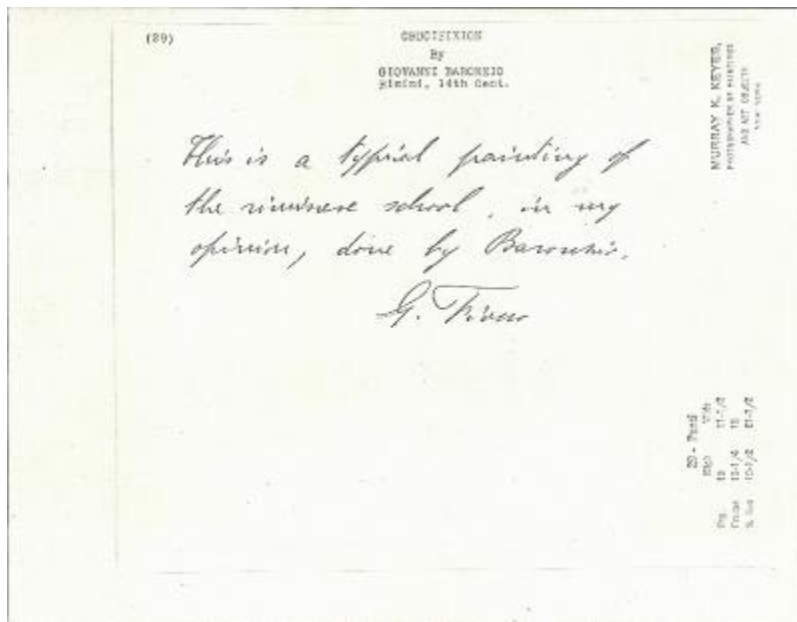 (29)
CRUCIFIXION
By
GIOVANNI BARONZIO
Rimini, 14th Cent.
This is a typical painting of
the riminese school, in my
opinion, done by Baronzio.
G.
MURRAY K. KEYES,
PHOTOGRAPHER OF PAINTINGS
AND ART OBJECTS
NEW YORK
29 - Panel
High Wide
11-1/2